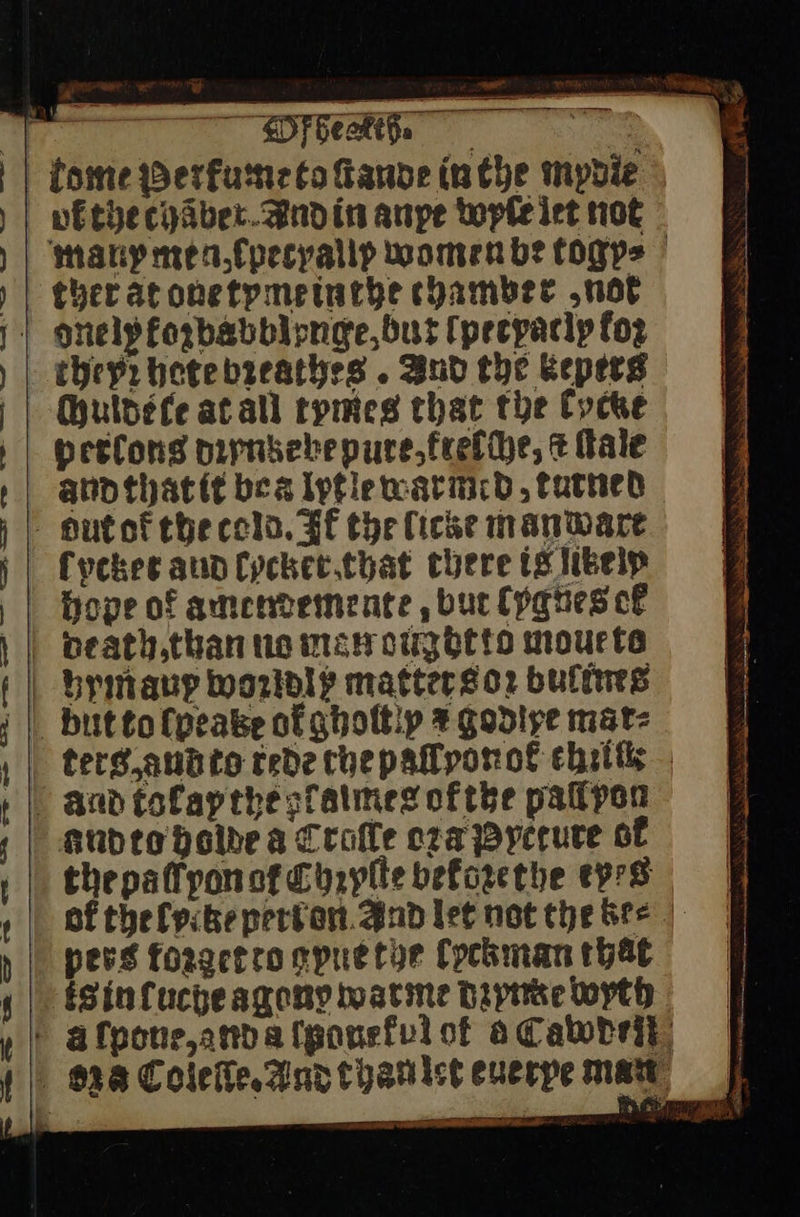 Of healthe
some Perfume to stande in the mydle
of the chāber. And in anye wyse let not
many men, specyally women be togy=
ther at one tyme in the chamber, not
onely for babblynge, but specyacly for
theyr hote breathes. And the kepers
shulde se at all tymes that the sycke
persons drynke be pure, fresshe, & stale
and that it be a lytle warmed, turned
out of the colo. If the sicke man ware
sycker and sycker, that there is likely
hope of amendemente, but sygnes of
death, than no man oughtto moueto
hym any worldly matters or busines
but to speake of ghostly & godlye mat=
ters, and to rede the passyon of christe
and to say the psalmes of the passyon
and to holde a Crosse or a Pyctur̄e of
the passyon of Chryste before the eyes
of the sycke person. And let not the ke=
pers forget to gyue the syckman that
is in suche agony warme drynke wyth
a spone, and a sponeful of a Cawdell
or a Colesse. And than let euerye man
do